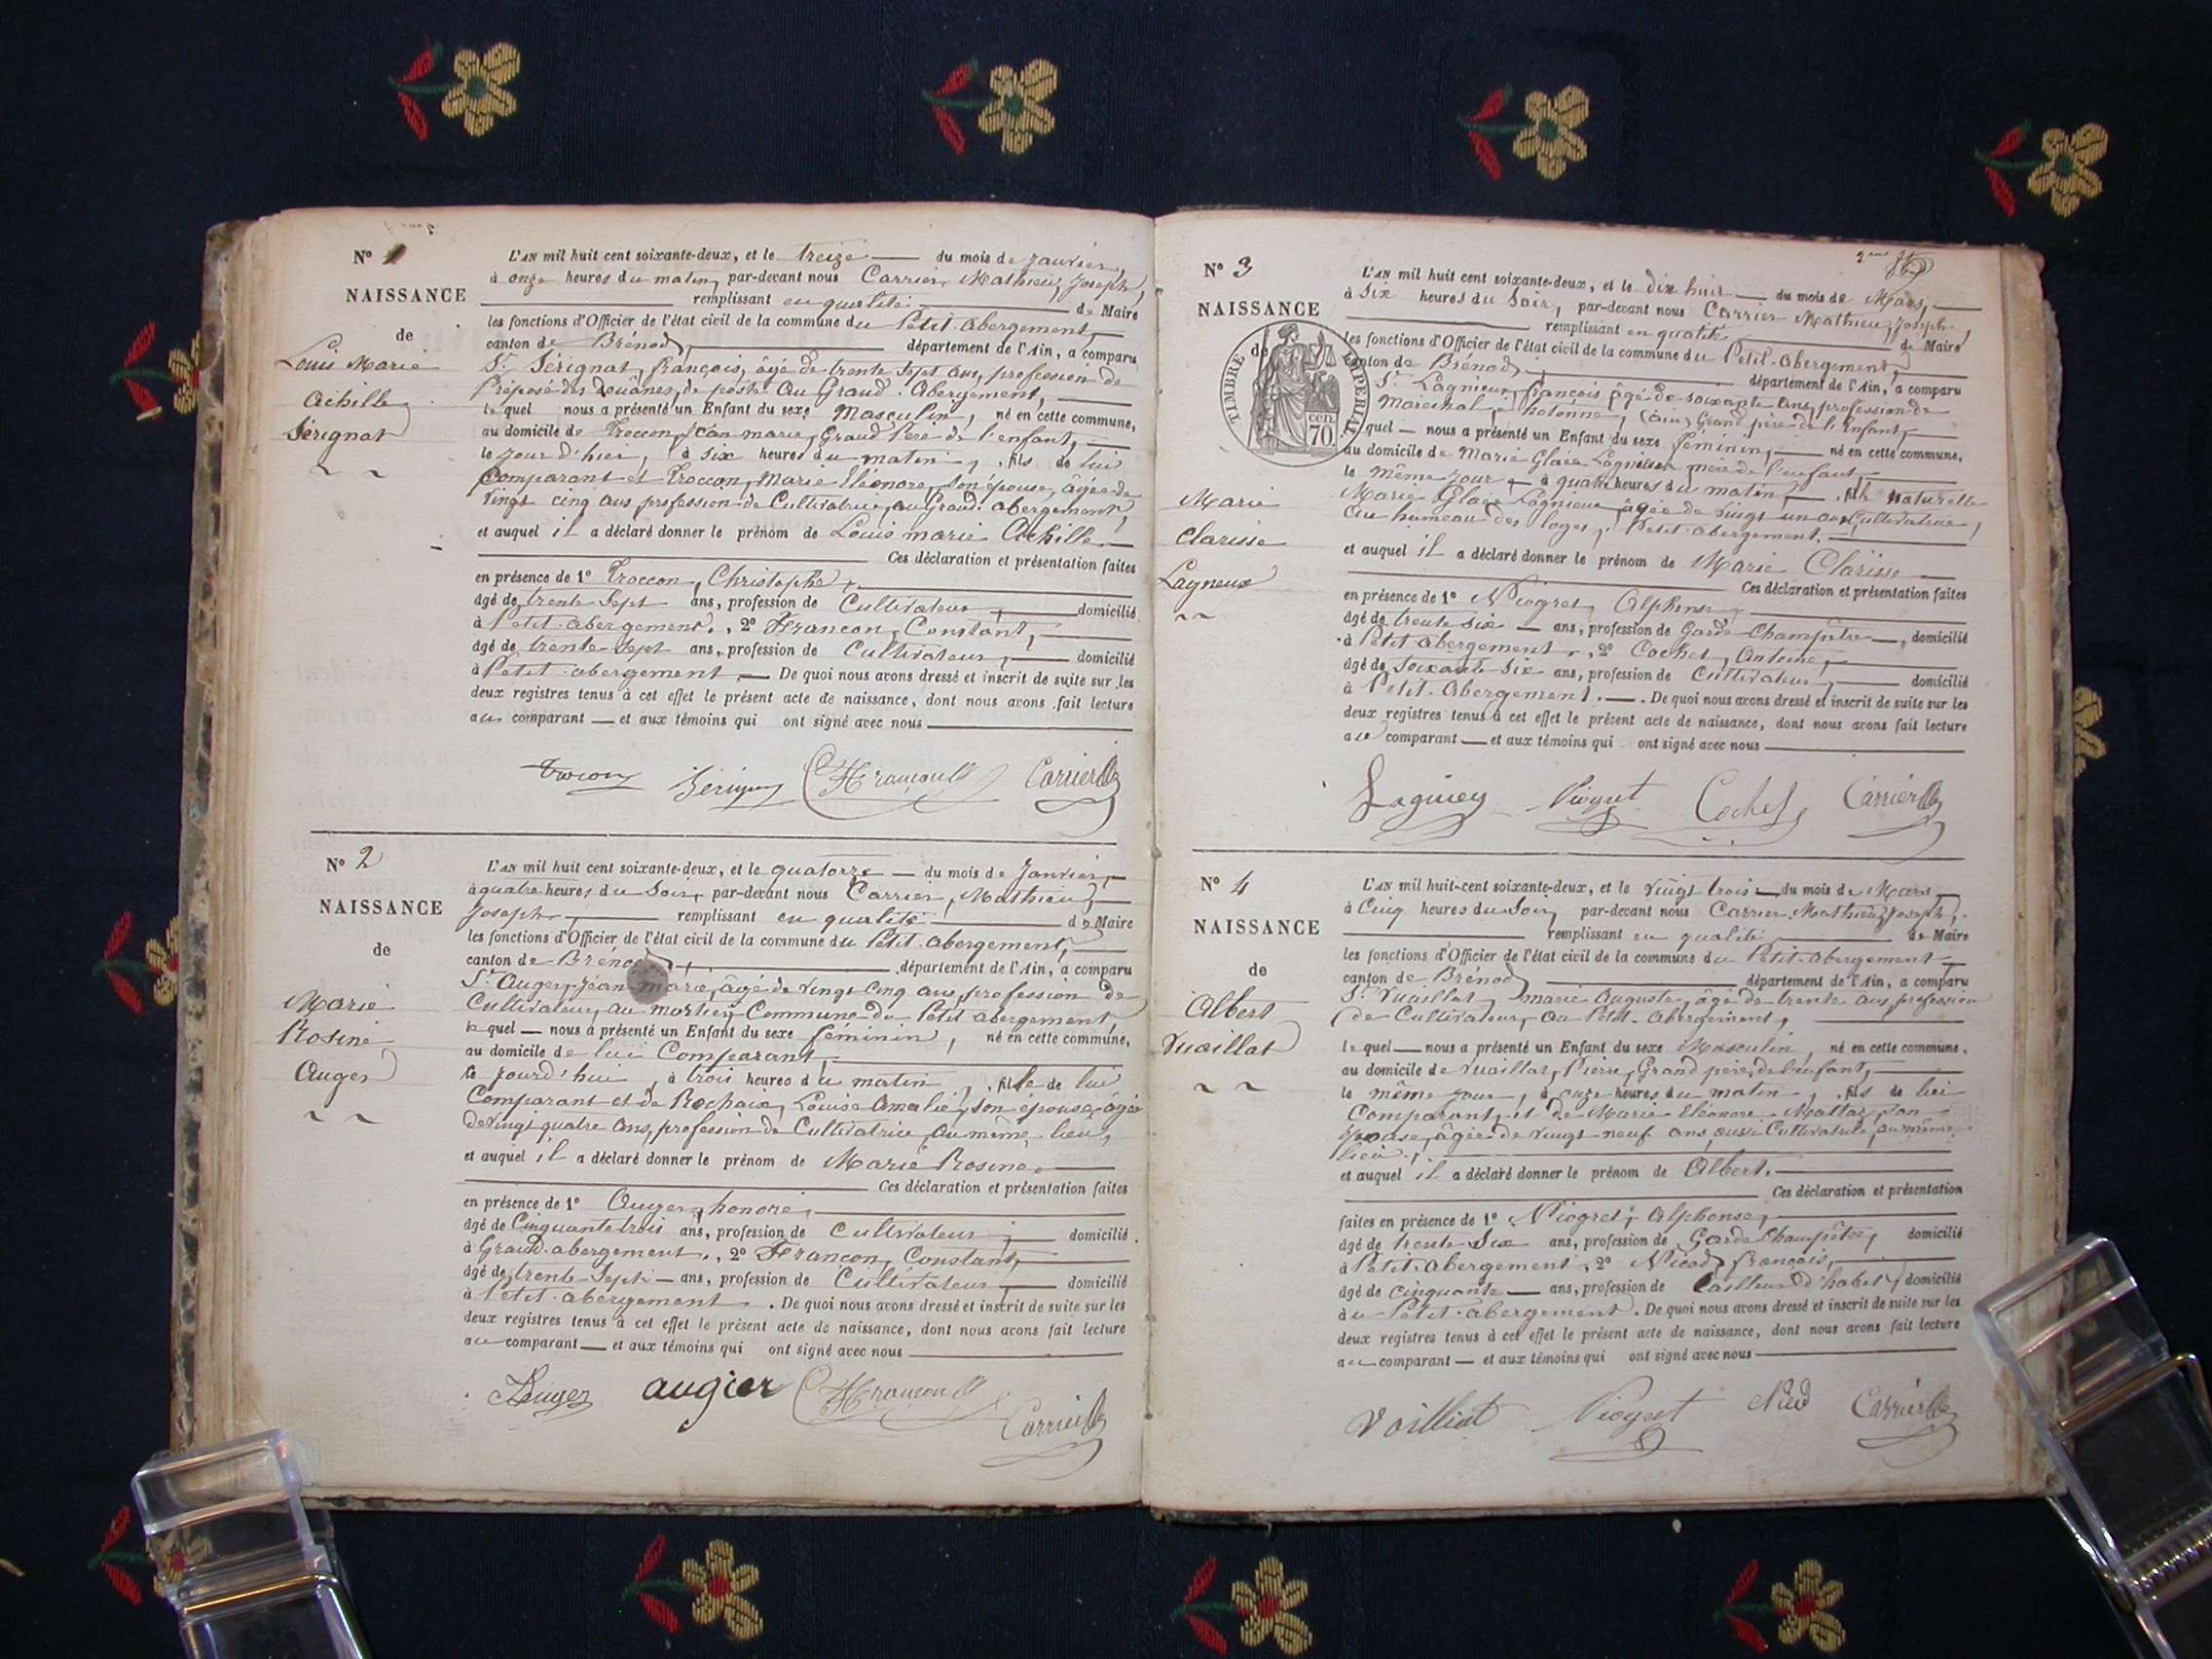 N° 1
NAISSANCE
de
Louis Marie
Achille
Sérignat
L'AN mil huit cent soixante-deux, et le treize du mois de Janvier,
à onze heures du matin, par-devant nous Carrier, Mathieu, Joseph,
remplissant en qualité de Maire
les fonctions d'Officier de l'état civil de la commune du Petit-abergement,
canton de Brénod, département de l'Ain, a comparu
Sr. Sérignat, françois, âgé de trente sept ans, profession de
Préposé des Douânes, de poste au Grand-Abergement,
le quel nous a présenté un Enfant du sexe Masculin, né en cette commune,
au domicile de Troccon, Jean marie, Grand Père de l'enfant,
le jour d'hier, à six heures du matin, fils de lui
Comparant et Troccon, Marie Eléonore, son épouse, âgée de
Vingt cinq ans profession de Cultivatrice, au Grand-abergement,
et auquel il a déclaré donner le prénom de Louis marie Achille.
Ces déclaration et présentation faites
en présence de 1° Troccon, Christophe,
âgé de trente sept ans, profession de Cultivateur, domicilié
à Petit-abergement, 2° Francon, Constant,
âgé de trente sept ans, profession de Cultivateur, domicilié
à Petit-abergement De quoi nous avons dressé et inscrit de suite sur les
deux registres tenus à cet effet le présent acte de naissance, dont nous avons fait lecture
au comparant et aux témoins qui ont signé avec nous
Carrier
N° 2
NAISSANCE
de
Marie
Rosine
Auger
L'AN mil huit cent soixante-deux, et le quatorze du mois de Janvier,
à quatre heures du Soir, par-devant nous Carrier, Mathieu,
Joseph, remplissant en qualité de Maire
les fonctions d'Officier de l'état civil de la commune du Petit-abergement,
canton de Brénod, département de l'Ain, a comparu
Sr. Auger, Jean marie, âgé de vingt cinq ans, profession de
Cultivateur, au mortier, Commune du Petit abergement,
le quel nous a présenté un Enfant du sexe féminin, né en cette commune,
au domicile de lui Comparant,
le jourd'hui, à trois heures du matin, fille de lui
Comparant et de Rochaix, Louise Amelie, son épouse, âgée
de vingt quatre ans, profession de Cultivatrice, au même lieu,
et auquel il a déclaré donner le prénom de Marie Rosine.
Ces déclaration et présentation faites
en présence de 1° Auger, honoré,
âgé de Cinquante trois ans, profession de Cultivateur, domicilié
à Grand-abergement, 2° Francon, Constant,
âgé de trente-sept ans, profession de Cultivateur, domicilié
à Petit-abergement. De quoi nous avons dressé et inscrit de suite sur les
deux registres tenus à cet effet le présent acte de naissance, dont nous avons fait lecture
au comparant et aux témoins qui ont signé avec nous
Auger augier Carrier
N° 3
NAISSANCE
de
TIMBRE IMPERIAL
70 cen
Marie
Clarisse
Lagneux
L'AN mil huit cent soixante-deux, et le dix huit du mois de Mars,
à six heures du Soir, par-devant nous Carrier Mathieu, Joseph,
remplissant en qualité de Maire
les fonctions d'Officier de l'état civil de la commune du Petit-abergement,
canton de Brénod, département de l'Ain, a comparu
Sr. Lagnieux, françois âgé de soixante ans, profession de
Maréchal, à hotonne, (Ain) Grand père de l'Enfant,
quel nous a présenté un Enfant du sexe féminin, né en cette commune,
au domicile de Marie Lagnieux mère de l'enfant,
le même jour à quatre heures du matin, fille naturelle
Marie Lagnieux âgée de vingt un ans, Cultivatrice,
au hameau des loges, Petit-abergement.
et auquel il a déclaré donner le prénom de Marie Clarisse
Ces déclaration et présentation faites
en présence de 1° Niogret, Alphonse,
âgé de trente six ans, profession de Garde-Champêtre, domicilié
à Petit abergement, 2° Cochet, Antoine,
âgé de soixante-six ans, profession de Cultivateur, domicilié
à Petit-Abergement. De quoi nous avons dressé et inscrit de suite sur les
deux registres tenus à cet effet le présent acte de naissance, dont nous avons fait lecture
au comparant et aux témoins qui ont signé avec nous
Niogret Cochet Carrier
N° 4
NAISSANCE
de
Albert
Vuaillat
L'AN mil huit-cent soixante-deux, et le vingt trois du mois de Mars
à Cinq heures du Soir, par-devant nous Carrier Mathieu, Joseph,
remplissant en qualité de Maire
les fonctions d'Officier de l'état civil de la commune du Petit-abergement
canton de Brénod, département de l'Ain, a comparu
Sr. Vuaillat, marie Auguste, âgé de trente ans, profession
de Cultivateur, au Petit-Abergement,
le quel nous a présenté un Enfant du sexe Masculin, né en cette commune,
au domicile de Vuaillat, Pierre, Grand père de l'enfant,
le même jour, à onze heures du matin, fils de lui
Comparant, et de Marie Eléonore Mattaz, son
épouse, âgée de vingt neuf ans, aussi Cultivatrice, au même
lieu,
et auquel il a déclaré donner le prénom de Albert.
Ces déclaration et présentation
faites en présence de 1° Niogret, Alphonse,
âgé de trente Six ans, profession de Garde Champêtre, domicilié
à Petit-Abergement, 2° Nicod, françois,
âgé de cinquante ans, profession de tailleur d'habit, domicilié
à u Petit-abergement. De quoi nous avons dressé et inscrit de suite sur les
deux registres tenus à cet effet le présent acte de naissance, dont nous avons fait lecture
au comparant et aux témoins qui ont signé avec nous
Niogret Carrier